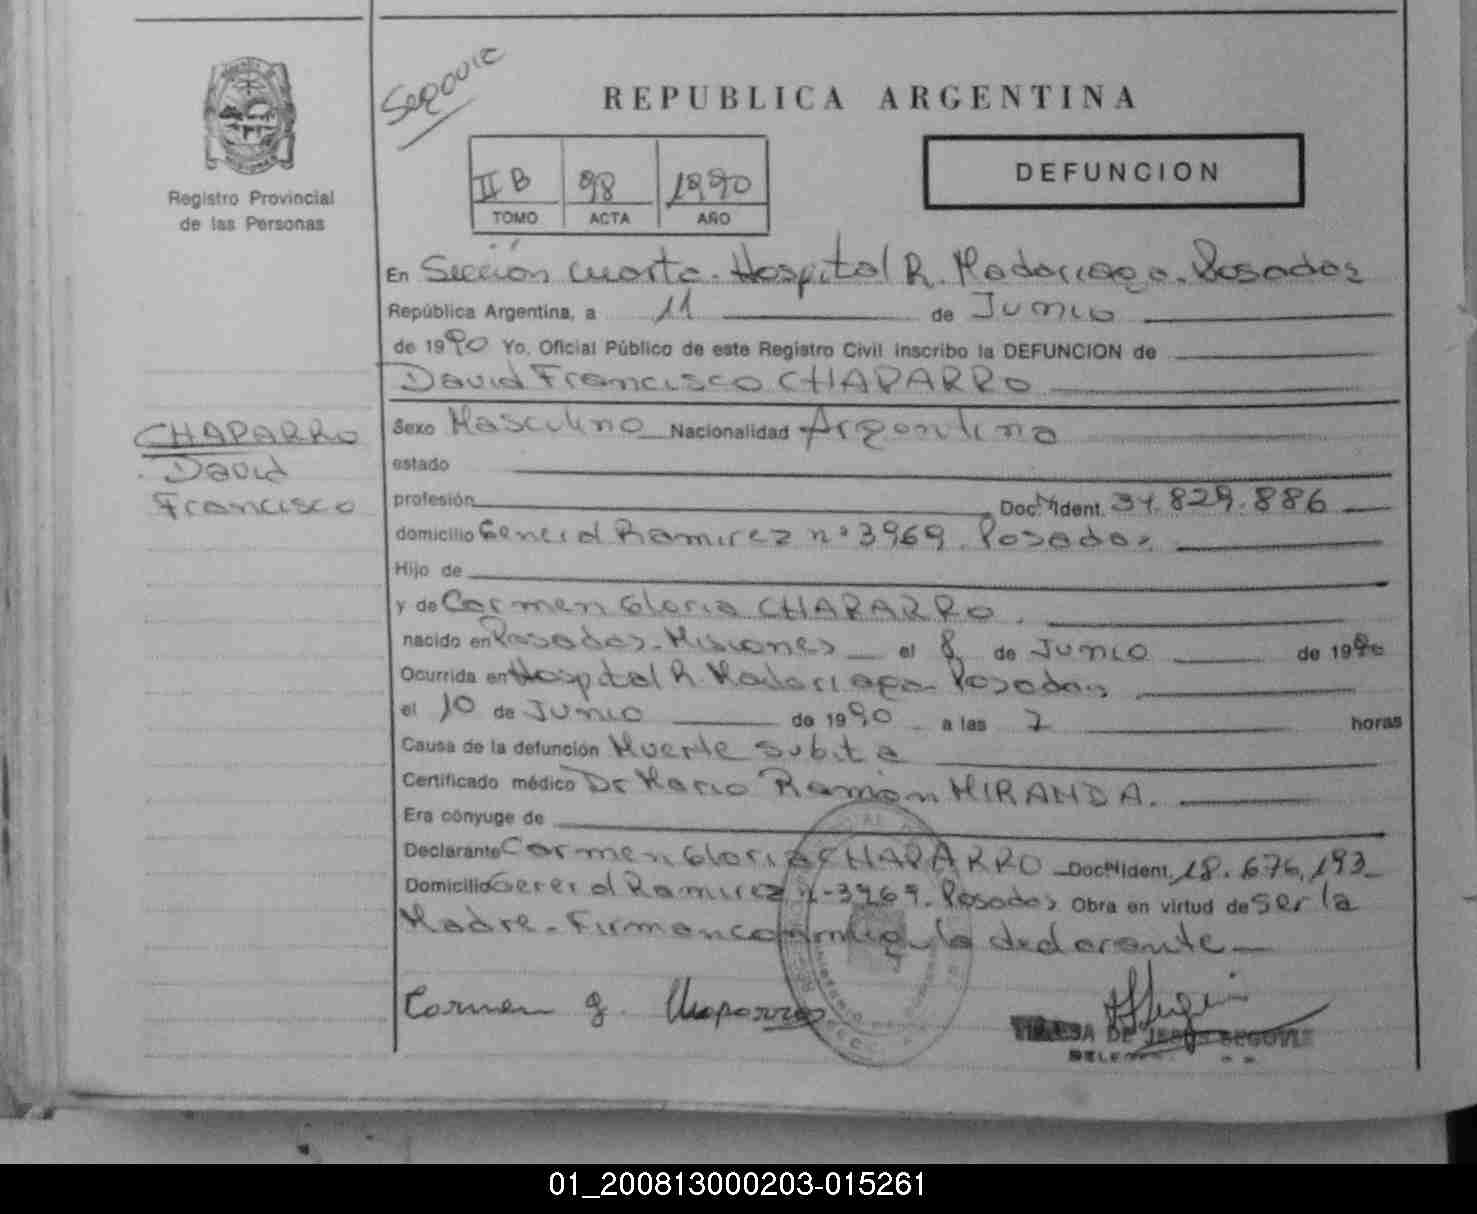 Segovia
REPUBLICA ARGENTINA
Registro Provincial
de las Personas
II B 98 1990
TOMO ACTA AÑO
DEFUNCION
En Sección Cuarta. Hospital R. Madariaga. Posadas
República Argentina, a 11 de Junio
de 1990 Yo, Oficial Público de este Registro Civil inscribo la DEFUNCION de
David Francisco CHAPARRO
CHAPARRO
David
Francisco
Sexo Masculino Nacionalidad Argentina
estado
profesión Doc. N Ident. 34.829.886
domicilio General Ramirez nº 3969. Posadas.
Hijo de
y de Carmen Gloria CHAPARRO.
nacido en Posadas-Misiones el 8 de Junio de 1990
Ocurrida en Hospital R. Madariaga-Posadas
el 10 de Junio de 1990 a las 7 horas
Causa de la defunción Muerte subita
Certificado médico Dr Mario Ramón MIRANDA.
Era cónyuge de
Declarante Carmen Gloria CHAPARRO Doc. N Ident. 18.676.193
Domicilio General Ramirez nº 3969. Posadas Obra en virtud de ser la
Madre. Firman conmigo la declarante
Carmen g. Chaparro
TERESA DE JESUS
01_200813000203-015261